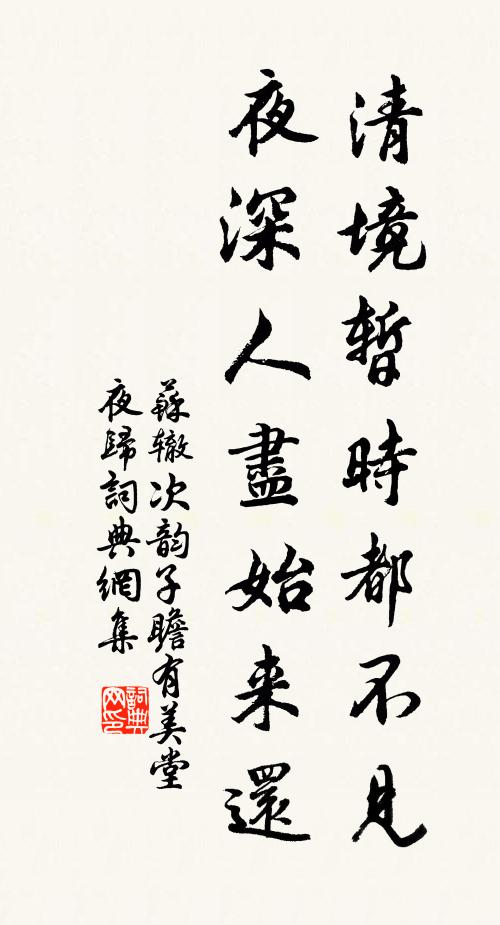 清境暫時都不見
夜深人盡始来還
蘇辙次韵子瞻有美堂
夜歸詞典網集
詞典网印